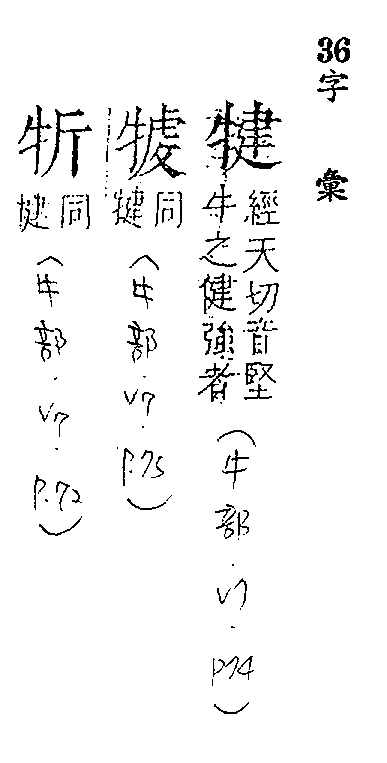 36字彙
犍
經天切音堅
牛之健強者
(牛部.V7.P74)
同
犍
(牛部.V7.P.75)
同
犍
(牛部.V7.P.72)